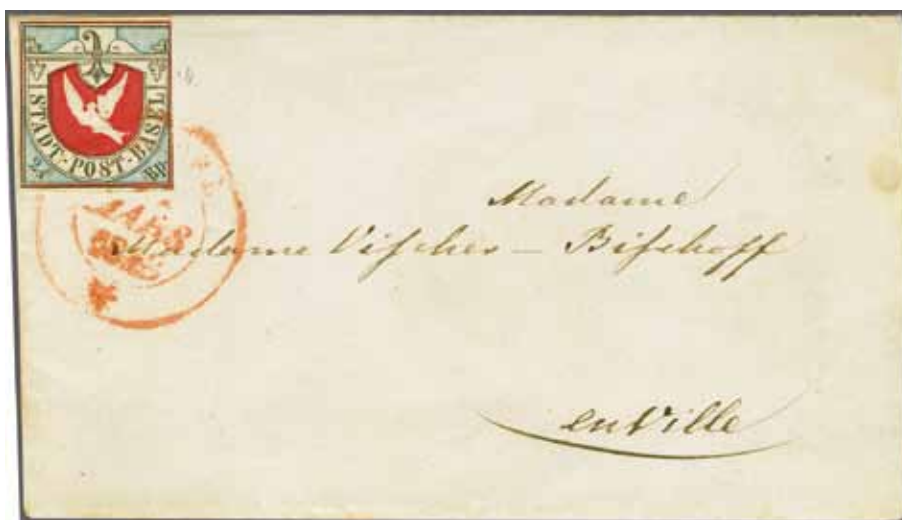 STADT-POST-BASEL
2½ Rp.
Madame
Madame Vischer – Bischoff
en Ville